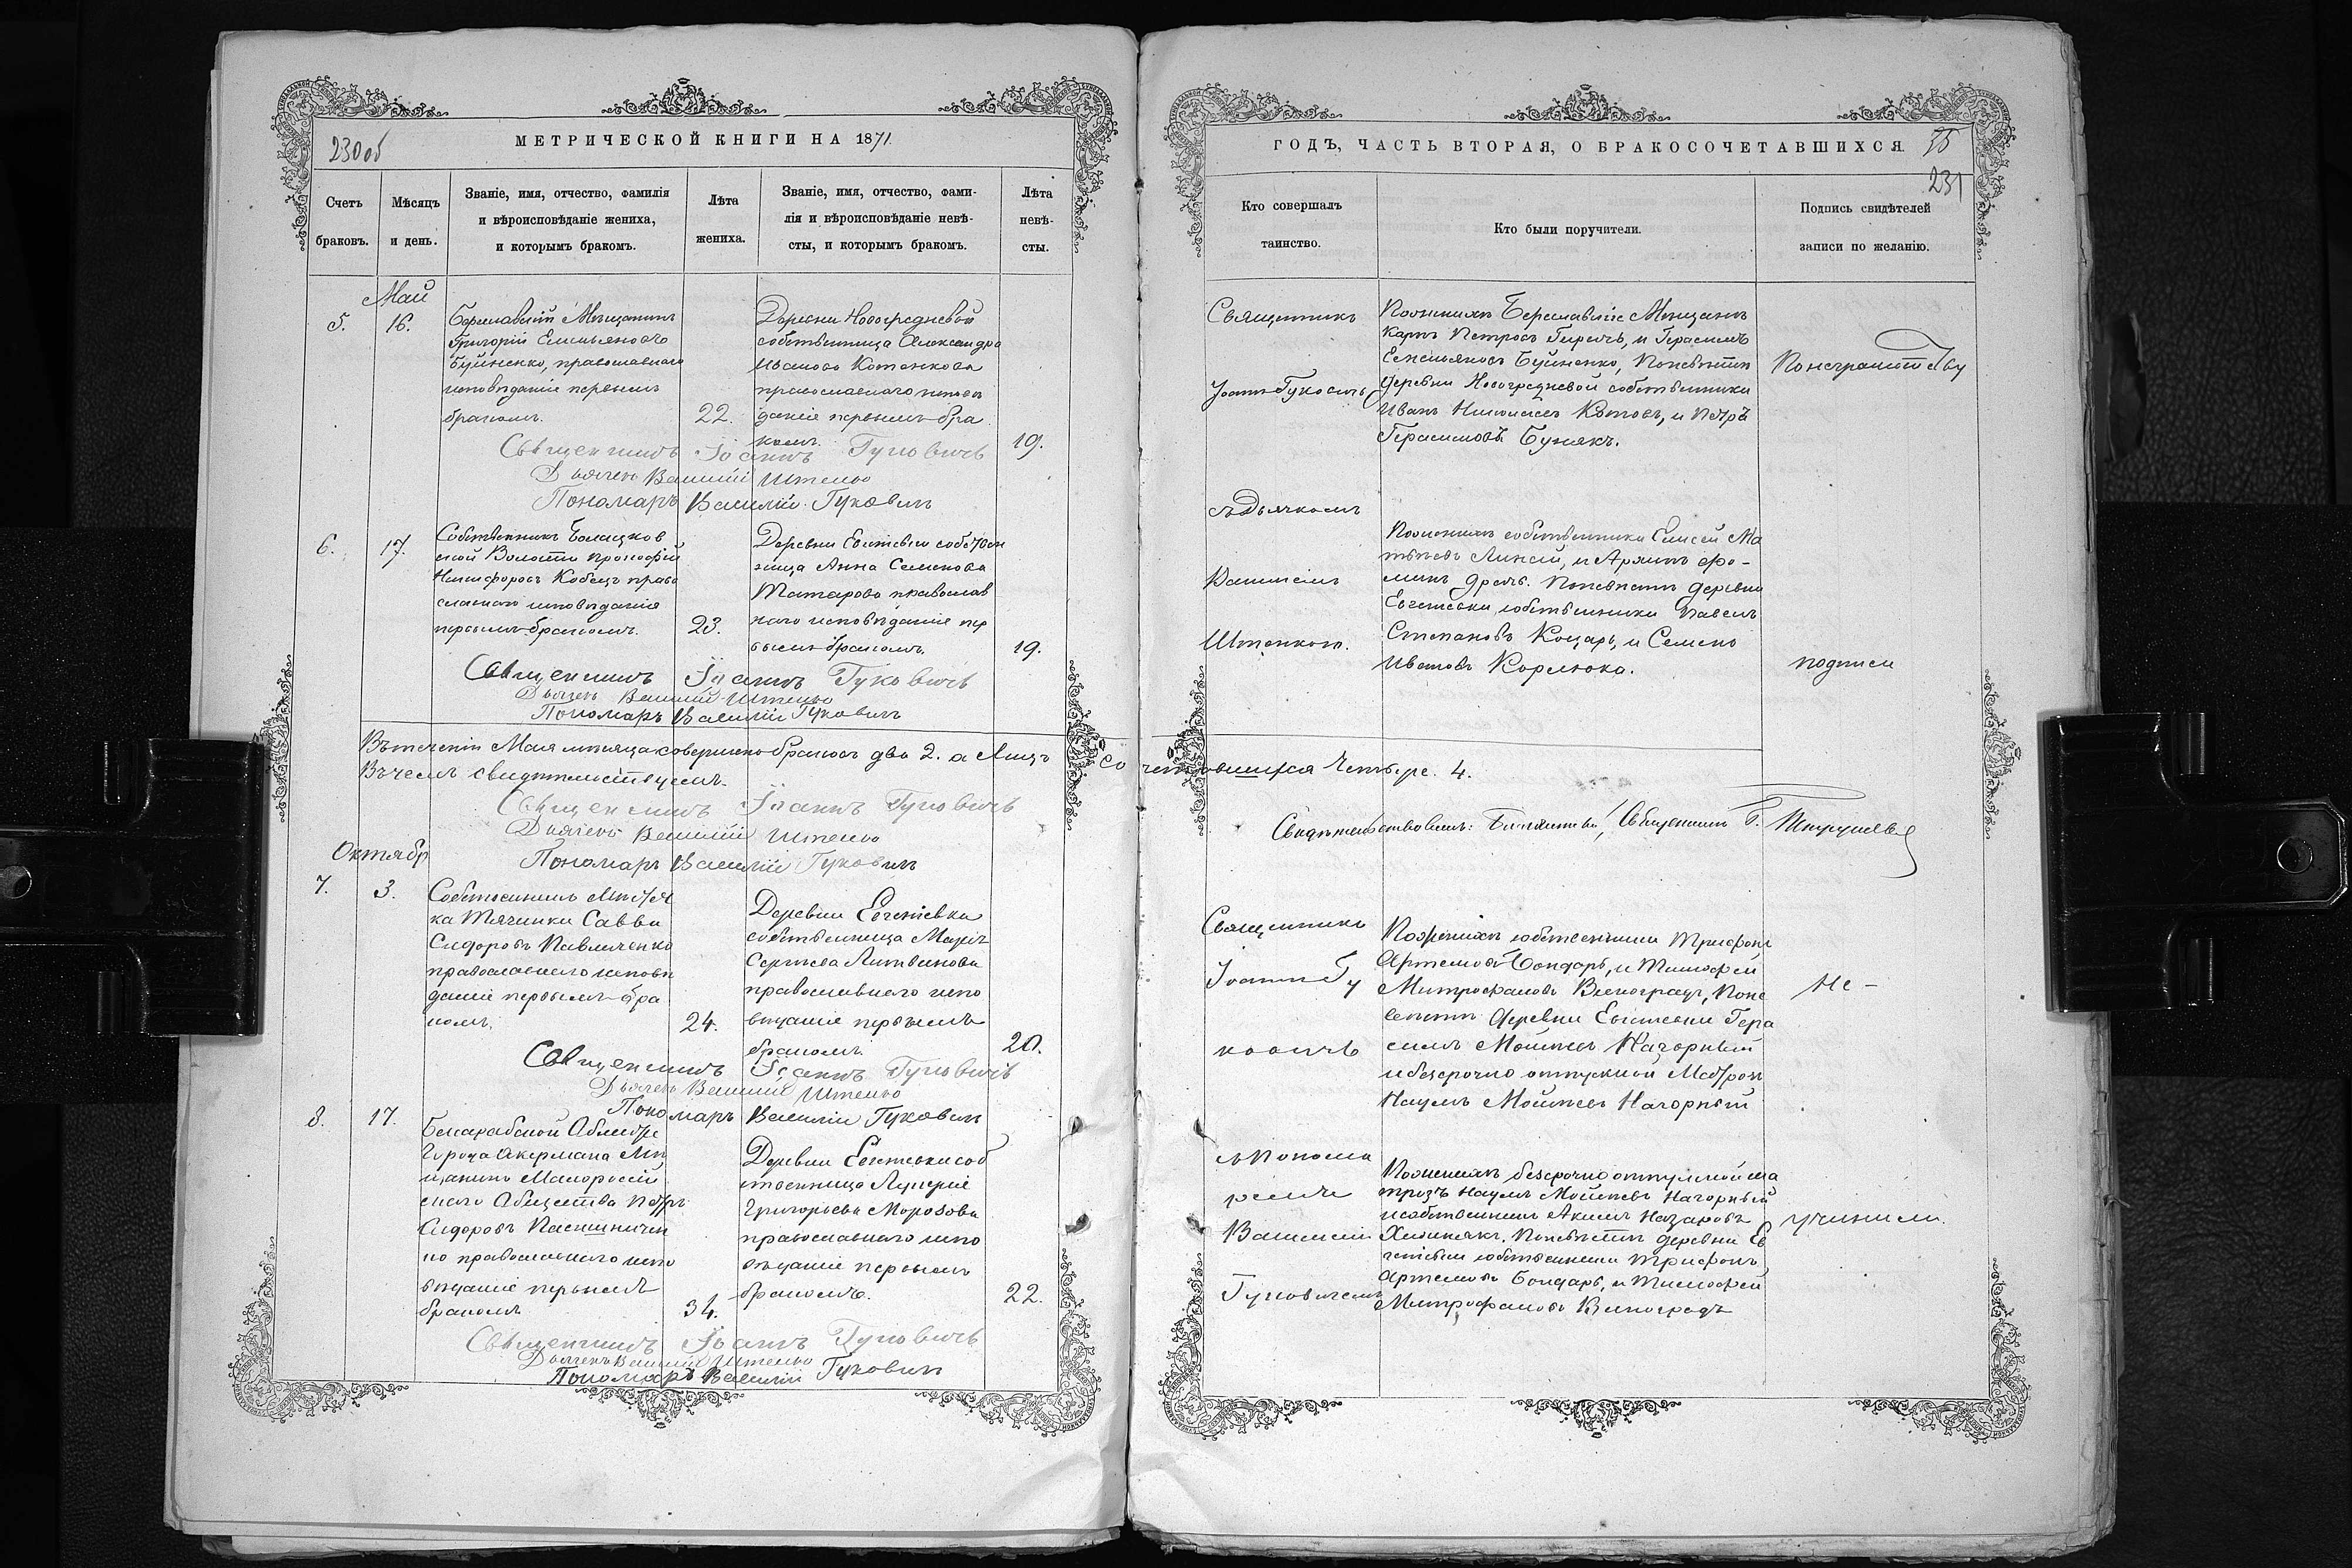 230об
МЕТРИЧЕСКОЙ КНИГИ НА 1871.
Счетъ браковъ.
Мѣсяцъ и день.
Званіе, имя, отчество, фамилія
и вѣроисповѣданіе жениха,
и которымъ бракомъ.
Лѣта жениха.
Званіе, имя, отчество, фами-
лія и вѣроисповѣданіе невѣ-
сты, и которымъ бракомъ.
Лѣта невѣ-
сты.
Май
5.
16.
Береславскій Мѣщанинъ
Григорій Емельяновъ
Буйненко, православнаго
исповѣданія первымъ
бракомъ.
22.
Деревни Новогредневой
собственница Александра
Иванова Котенкова
православнаго исповѣ
данія первымъ бра
комъ.
19.
Священникъ Іоаннъ Гуковичъ
Дьячекъ Василій Штенко
Пономарь Василій Гуковичъ
6.
17.
Собственникъ
ской Волости Прокофій
Никифоровъ Кобецъ право
славнаго исповѣданія
первымъ бракомъ.
23.
Деревни Евгеніевки собствен
ница Анна Семенова
Татарова православ
наго исповѣданія пер
вымъ бракомъ.
19.
Священникъ Іоаннъ Гуковичъ
Дьячекъ Василій Штенко
Пономарь Василій Гуковичъ
Въ теченіи Мая мѣсяца совершено браковъ два 2. а Лицъ сочетавшихся Четыре. 4.
Въ чемъ свидѣтельствуемъ.
Священникъ Іоаннъ Гуковичъ
Дьячекъ Василій Штенко
Пономарь Василій Гуковичъ
Октябр
7.
3.
Собственникъ Мѣстеч
ка Тягинки Савва
Сидоровъ Павличенко
православнаго исповѣ
данія первымъ бра
комъ.
24.
Деревни Евгеніевки
собственница Марія
Сергѣева Литвинова
православнаго испо
вѣданія первымъ
бракомъ.
20.
Священникъ Іоаннъ Гуковичъ
Дьячекъ Василій Штенко
Пономарь Василій Гуковичъ
8.
17.
Бесарабской Области
Города Акермана Мѣ
щанинъ Малоросій
скаго Общества Петръ
Сидоровъ Пасишничен
ко православнаго испо
вѣданія первымъ
бракомъ
34.
Деревни Евгеніевки соб
ственница Лукерія
Григорьева Морозова
православнаго испо
вѣданія первымъ
бракомъ.
22.
Священникъ Іоаннъ Гуковичъ
Дьячекъ Василій Штенко
Пономарь Василій Гуковичъ
ГОДЪ, ЧАСТЬ ВТОРАЯ, О БРАКОСОЧЕТАВШИХСЯ
231
Кто совершалъ таинство.
Кто были поручители.
Подпись свидѣтелей
записи по желанію.
Священникъ
Іоаннъ Гуковичъ
съ Дьячкомъ
Василіемъ
Штенком.
По женихѣ Береславскіе Мѣщане
Карпъ Петровъ и Герасимъ
Емельяновъ Буйненко, По невѣстѣ
деревни Новогредневой собственники
Иванъ Николаевъ Котовъ, и Петръ
Герасимовъ Бунякъ.
По неграмотству
По женихѣ собственники Елисей Ма
твѣевъ и
По невѣстѣ деревни
Евгеніевки собственники Павелъ
Степановъ Коцарь, и Семенъ
Ивановъ Корлюка.
подписи
Свидѣтельствовалъ: Священникъ
Священникъ
Іоаннъ Гу
ковичъ
По женихѣ собственники Трифонъ
Артемовъ Бондарь, и Тимофей
Митрофановъ Виноградъ, По не
вѣстѣ деревни Евгеніевки Гера
симъ Мойсѣевъ Нагорный
и безсрочно отпускной Матросъ
Наумъ Мойсѣевъ Нагорный
Не -
съ Понома
ремъ
Василіемъ
Гуковичемъ
По женихѣ безсрочно отпускной ма
тросъ Наумъ Мойсѣевъ Нагорный
и собственникъ Акимъ Назаровъ
По невѣстѣ деревни Ев
геніевки собственники Трифонъ
Артемовъ Бондарь, и Тимофей
Митрофановъ Виноградъ
учинили.